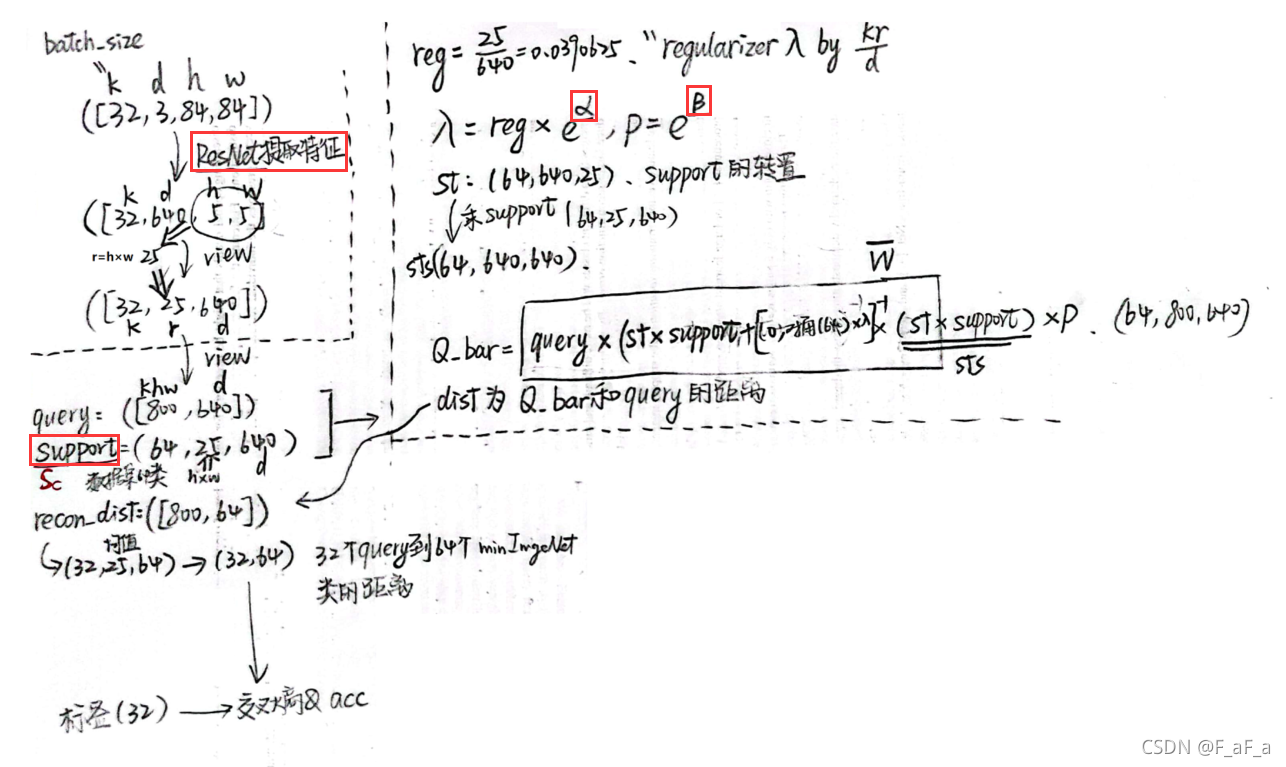 batch_size
"k d h w
([32,3,84,84])
ResNet提取特征
k d h w
([32,640,5,5]
r=h×w 25 view
([32,25,640])
k r d
view
khw d
query=([800,640])
support=(64,25,640)
Sc 数据集64类 h×w d
recon_dist=([800,64])
均值
(32,25,64)→(32,64) 32个query到64个minImgeNet
类的距离
标签(32)→交叉熵& acc
reg=25/640=0.0390625、"regularizer λ by kr/d
λ=reg×e^α,ρ=e^β
st:(64,640,25)、support的转置
乘support(64,25,640)
sts(64,640,640).
W̄
Q_bar=query×(st×support+[(×λ)]⁻¹×(st×support)×ρ、(64,800,640)
sts
dist为Q_bar和query的距离
CSDN @F_aF_a